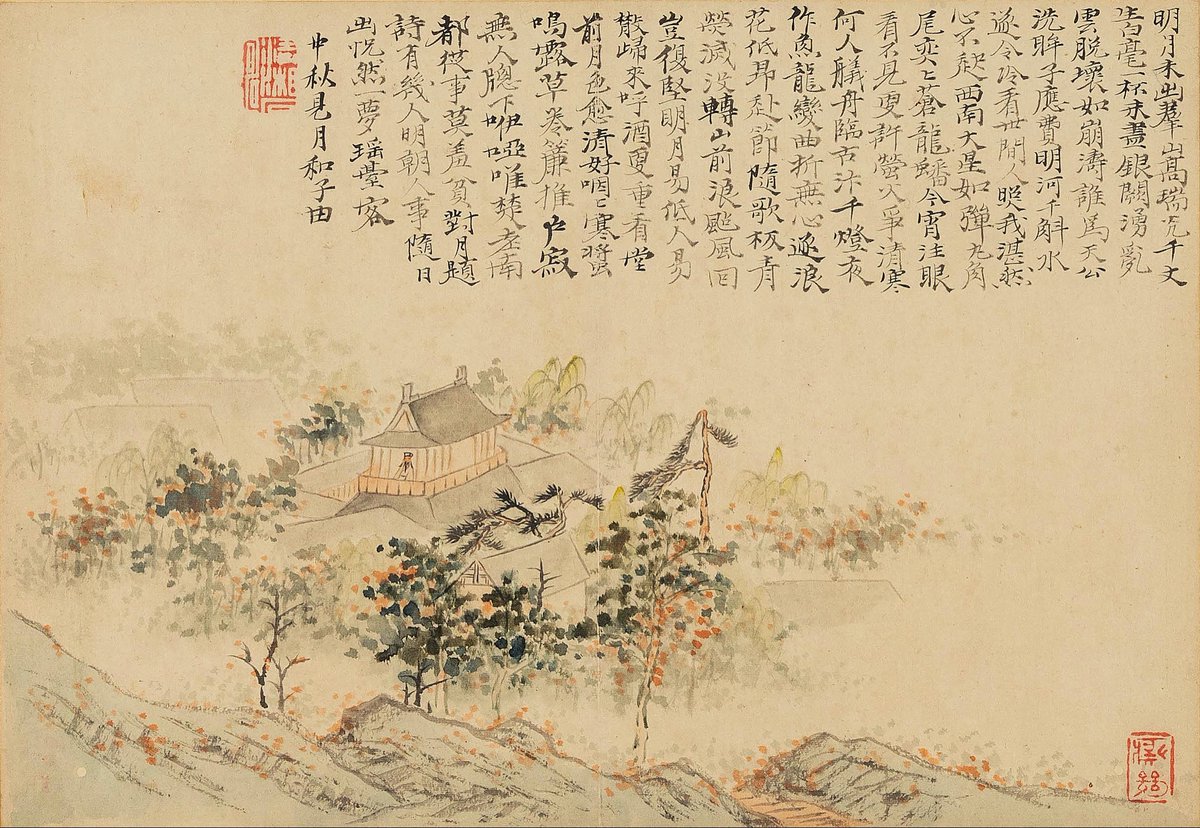 明月未出羣山高瑞光千丈
生白毫一杯未盡銀闕湧亂
雲脫壞如崩濤誰為天公
洗眸子應費明河千斛水
遂令冷看世間人照我湛然
心不起西南大星如彈丸角
尾奕〻蒼龍蟠今宵注眼
看不見更許螢火爭清寒
何人艤舟臨古汴千燈夜
作魚龍變曲折無心逐浪
花低昂赴節隨歌板青
熒滅沒轉山前浪颭風回
豈復堅明月易低人易
散歸來呼酒更重看堂
前月色愈清好咽〻寒螿
鳴露草卷簾推戶寂
無人窓下咿啞唯楚老南
都從事莫羞貧對月題
詩有幾人明朝人事隨日
出恍然一夢瑤臺客
中秋見月和子由